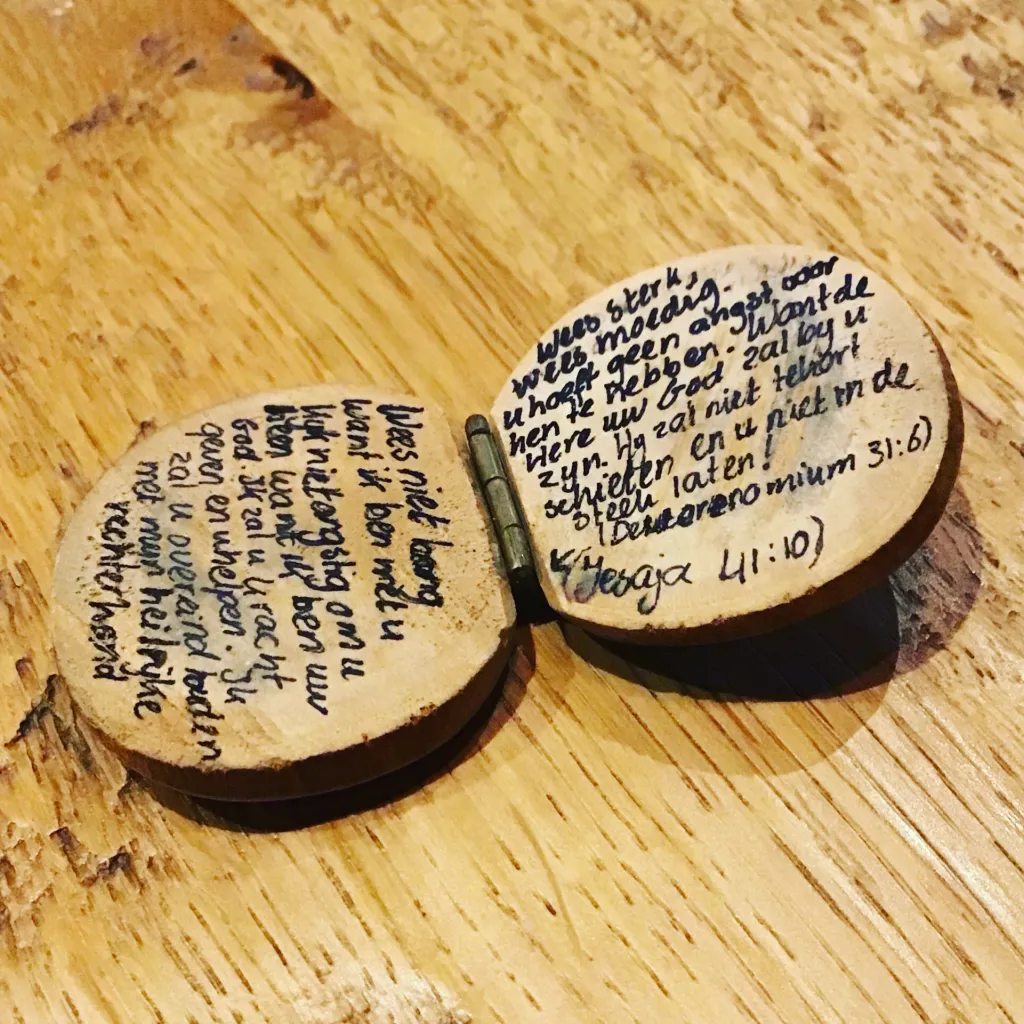 Wees niet bang
want ik ben met u
kijk niet angstig om u
heen want ik ben uw
God. Ik zal u kracht
geven en u helpen. Ik
zal u overeind houden
met mijn heilrijke
rechterhand
Wees sterk,
wees moedig.
u hoeft geen angst voor
hen te hebben. Want de
Here uw God zal by u
zyn. Hy zal niet tekort
schieten en u niet in de
steek laten!
(Deuterenomium 31:6)
(Jesaja 41:10)